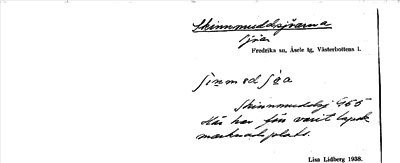 Skinnmuddsjöarna
sjöar
Fredrika sn, Åsele lg, Västerbottens l.
Skinnmuddsj 465
Här har förr varit lapsk
marknadsplats.
Lisa Lidberg 1938.